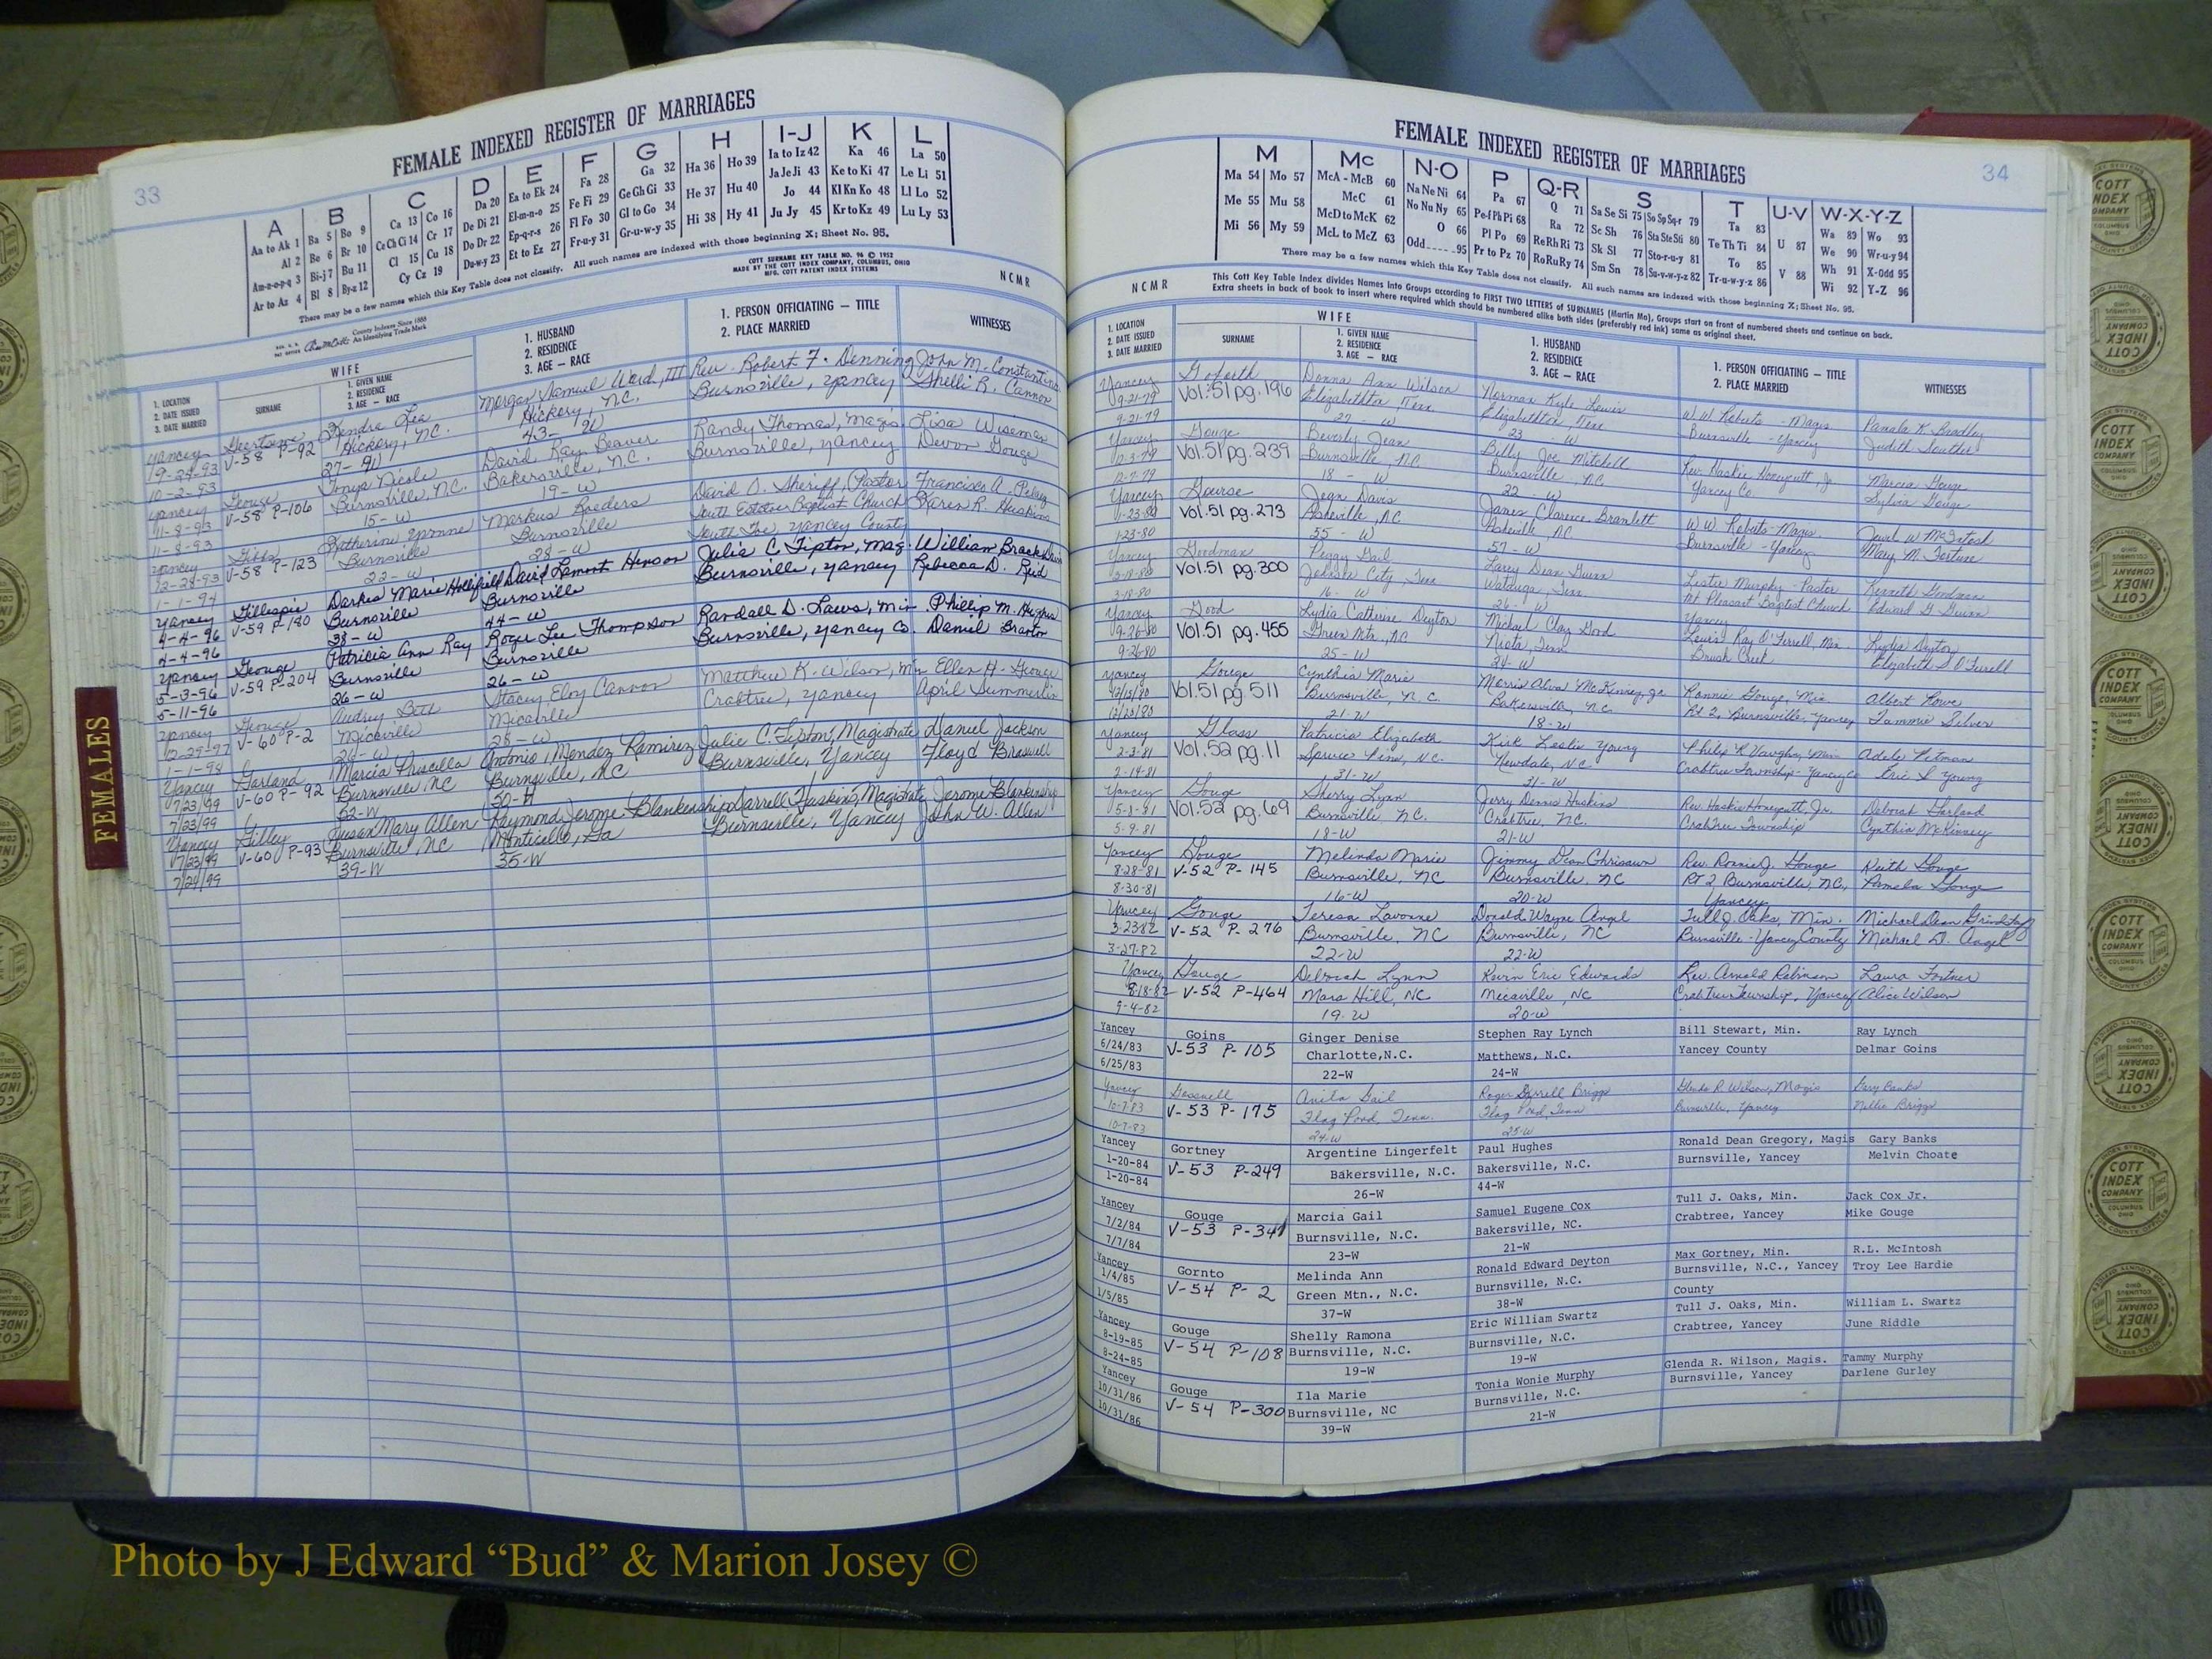 33
FEMALE INDEXED REGISTER OF MARRIAGES
A
Aa to Ak 1
Al 2
Am-n-o-p-q 3
Ar to Az 4
B
Ba 5 Bo 9
Be 6 Br 10
Bi-j 7 Bu 11
Bl 8 By-z 12
C
Ca 13 Co 16
Ce Ch Ci 14 Cr 17
Cl 15 Cu 18
Cy Cz 19
D
Da 20
De Di 21
Do Dr 22
Du-w-y 23
E
Ea to Ek 24
El-m-n-o 25
Ep-q-r-s 26
Et to Ez 27
F
Fa 28
Fe Fi 29
Fl Fo 30
Fr-u-y 31
G
Ga 32
Ge Gh Gi 33
Gl to Go 34
Gr-u-w-y 35
H
Ha 36 Ho 39
He 37 Hu 40
Hi 38 Hy 41
I-J
Ia to Iz 42
Ja Je Ji 43
Jo 44
Ju Jy 45
K
Ka 46
Ke to Ki 47
Kl Kn Ko 48
Kr to Kz 49
L
La 50
Le Li 51
Ll Lo 52
Lu Ly 53
There may be a few names which this Key Table does not classify. All such names are indexed with those beginning X; Sheet No. 95.
COTT SURNAME KEY TABLE NO. 96 © 1952
MADE BY THE COTT INDEX COMPANY, COLUMBUS, OHIO
MFG. COTT PATENT INDEX SYSTEMS
NCMR
County Indexes Since 1888
An Identifying Trade Mark
WIFE
1. LOCATION
2. DATE ISSUED
3. DATE MARRIED
SURNAME
1. GIVEN NAME
2. RESIDENCE
3. AGE — RACE
1. HUSBAND
2. RESIDENCE
3. AGE — RACE
1. PERSON OFFICIATING — TITLE
2. PLACE MARRIED
WITNESSES
Yancey Kendra Lea Morgan Samuel Ward, III Rev. Robert F. Denning John M. Constantino
V-58 P-92 Hickory, N.C. Hickory, N.C. Burnsville, Yancey Shelli R. Cannon
10-2-93 27-W 43- W
Yancey Gouge Tonya Nicole David Ray Beaver Randy Thomas, Magis Lisa Wiseman
11-8-93 V-58 P-106 Burnsville, N.C. Bakersville, N.C. Burnsville, Yancey Devon Gouge
11-8-93 15-W 19-W
Yancey Gibbs Katherine Yvonne Markus Roeders David O. Sheriff, Pastor Francisco A.
12-28-93 V-58 P-123 Burnsville Burnsville South Estatoe Baptist Church Karen R. Huskins
1-1-94 22-W 28-W South Toe, Yancey County
Yancey Gillespie Darkes Marie Hollifield David Lamont Henson Julia C. Tipton, Mag. William Brack Davis
4-4-96 V-59 P-180 Burnsville Burnsville Burnsville, Yancey Rebecca D. Reid
4-4-96 38-W 44-W
Yancey Gouge Patricia Ann Ray Roger Lee Thompson Randall D. Laws, Min. Phillip M. Hughes
5-3-96 V-59 P-204 Burnsville Burnsville Burnsville, Yancey Co. Daniel Braxton
5-11-96 26-W 26-W
Yancey Gouge Audrey Beth Stacey Eloy Cannon Matthew K. Wilson, Min Ellen H. Gouge
12-29-97 V-60 P-2 Micaville Micaville Crabtree, Yancey April Summerlin
1-1-98 26-W 28-W
Yancey Garland Marcia Priscilla Antonio Mendez Ramirez Julie C. Tipton, Magistrate Daniel Jackson
7/23/99 V-60 P-92 Burnsville, NC Burnsville, NC Burnsville, Yancey Floyd Braswell
7/23/99 32-W 30-H
Yancey Gilley Susan Mary Allen Raymond Jerome Blankenship Darrell Haskins, Magistrate Jerome Blankenship
7/23/99 V-60 P-93 Burnsville, NC Monticello, Ga Burnsville, Yancey John W. Allen
7/24/99 39-W 35-W
FEMALES
34
FEMALE INDEXED REGISTER OF MARRIAGES
M
Ma 54 Mo 57
Me 55 Mu 58
Mi 56 My 59
Mc
McA - McB 60
McC 61
McD to McK 62
McL to McZ 63
N-O
Na Ne Ni 64
No Nu Ny 65
O 66
Odd 95
P
Pa 67
Pe-f Ph Pi 68
Pl Po 69
Pr to Pz 70
Q-R
Q 71
Ra 72
Re Rh Ri 73
Ro Ru Ry 74
S
Sa Se Si 75 So Sp Sq-r 79
Sc Sh 76 Sta Ste Sti 80
Sk Sl 77 Sto-r-u-y 81
Sm Sn 78 Su-v-w-y-z 82
T
Ta 83
Te Th Ti 84
To 85
Tr-u-w-y-z 86
U-V
U 87
V 88
W-X-Y-Z
Wa 89 Wo 93
We 90 Wr-u-y 94
Wh 91 X-Odd 95
Wi 92 Y-Z 96
There may be a few names which this Key Table does not classify. All such names are indexed with those beginning X; Sheet No. 95.
NCMR
This Cott Key Table Index divides Names into Groups according to FIRST TWO LETTERS of SURNAMES (Martin Ma), Groups start on front of numbered sheets and continue on back.
Extra sheets in back of book to insert where required which should be numbered alike both sides (preferably red ink) same as original sheet.
WIFE
1. LOCATION
2. DATE ISSUED
3. DATE MARRIED
SURNAME
1. GIVEN NAME
2. RESIDENCE
3. AGE — RACE
1. HUSBAND
2. RESIDENCE
3. AGE — RACE
1. PERSON OFFICIATING — TITLE
2. PLACE MARRIED
WITNESSES
Yancey Goforth Donna Ann Wilson Norman Kyle Lewis W.W. Roberts - Magis Pamala K. Bradley
9-21-79 Vol:51 pg.196 Elizabethton, Tenn Elizabethton, Tenn Burnsville - Yancey Judith Souther
9-21-79 27 - W 23 - W
Yancey Gouge Beverly Jean Billy Joe Mitchell Rev. Haskie Honeycutt, Jr. Marcia Gouge
Vol.51 pg.239 Burnsville, NC Burnsville, NC Yancey Co. Sylvia Gouge
12-7-79 18 - W 22 - W
Yancey Gourse Jean Davis James Clarence Bramlett W.W. Roberts-Magis Jewel W. McIntosh
1-23-80 Vol.51 pg.273 Asheville, NC Asheville, NC Burnsville - Yancey Mary M. Fortune
1-23-80 55 - W 57 - W
Yancey Goodman Peggy Gail Larry Dean Guinn Lester Murphy - Pastor Kenneth Goodman
3-18-80 Vol.51 pg.300 Johnson City, Tenn Watauga, Tenn Mt Pleasant Baptist Church Edward G. Guinn
3-18-80 16- W 26- W Yancey
Yancey Good Lydia Catherine Deyton Michael Clay Good Lewis Ray O'Ferrell, Min. Lydia Deyton
9-26-80 Vol.51 pg.455 Green Mtn., NC Niota, Tenn Brush Creek Elizabeth S. O'Ferrell
9-26-80 25-W 24-W
Yancey Gouge Cynthia Marie Morris Alva McKinney, Jr. Ronnie Gouge, Min Albert Howe
12/15/80 Vol.51 pg 511 Burnsville, N.C. Bakersville, N.C. Rt 2, Burnsville, Yancey Tammie Silver
21-W 18-W
Yancey Glass Patricia Elizabeth Kirk Leslie Young Philip R Vaughn, Min Adele Pitman
2-3-81 Vol.52 pg.11 Spruce Pine, NC. Newdale, NC Crabtree Township - Yancey Co Eric S Young
2-14-81 31-W 31-W
Yancey Gouge Sherry Lynn Jerry Dennis Huskins Rev. Haskie Honeycutt, Jr. Deborah Garland
5-8-81 Vol.52 pg.69 Burnsville, N.C. Crabtree, NC. Crabtree Township Cynthia McKinney
5-9-81 18-W 21-W
Yancey Gouge Melinda Marie Jimmy Dean Chrisawn Rev. Ronnie J. Gouge Keith Gouge
8-28-81 V-52 P-145 Burnsville, NC Burnsville, NC RT 2 Burnsville, NC, Pamela Gouge
8-30-81 16-W 20-W Yancey
Yancey Gouge Teresa Lavonne Donald Wayne Angel Tull J. Oaks, Min. Michael Dean Grindstaff
3-23-82 V-52 P-276 Burnsville, NC Burnsville, NC Burnsville - Yancey County Michael D. Angel
3-27-82 22-W 22-W
Yancey Gouge Deborah Lynn Kevin Eric Edwards Rev. Arnold Robinson Laura Fortner
8-18-82 V-52 P-464 Mars Hill, NC Micaville, NC Crabtree Township, Yancey Alice Wilson
9-4-82 19-W 20-W
Yancey Goins Ginger Denise Stephen Ray Lynch Bill Stewart, Min. Ray Lynch
6/24/83 V-53 P-105 Charlotte,N.C. Matthews, N.C. Yancey County Delmar Goins
6/25/83 22-W 24-W
Yancey Gosnell Anita Gail Roger Darrell Briggs Glenda R. Wilson, Magis Gary Banks
10-7-83 V-53 P-175 Flag Pond, Tenn. Flag Pond, Tenn Burnsville, Yancey Nellie Briggs
10-7-83 24-W 25-W
Yancey Gortney Argentine Lingerfelt Paul Hughes Ronald Dean Gregory, Magis Gary Banks
1-20-84 V-53 P-249 Bakersville, N.C. Bakersville, N.C. Burnsville, Yancey Melvin Choate
1-20-84 26-W 44-W
Yancey Gouge Marcia Gail Samuel Eugene Cox Tull J. Oaks, Min. Jack Cox Jr.
7/2/84 V-53 P-341 Burnsville, N.C. Bakersville, NC. Crabtree, Yancey Mike Gouge
7/7/84 23-W 21-W
Yancey Gornto Melinda Ann Ronald Edward Deyton Max Gortney, Min. R.L. McIntosh
1/4/85 V-54 P-2 Green Mtn., N.C. Burnsville, N.C. Burnsville, N.C., Yancey Troy Lee Hardie
1/5/85 37-W 38-W County
Yancey Gouge Shelly Ramona Eric William Swartz Tull J. Oaks, Min. William L. Swartz
8-19-85 V-54 P-108 Burnsville, N.C. Burnsville, N.C. Crabtree, Yancey June Riddle
8-24-85 19-W 19-W
Yancey Gouge Ila Marie Tonia Wonie Murphy Glenda R. Wilson, Magis. Tammy Murphy
10/31/86 V-54 P-300 Burnsville, NC Burnsville, N.C. Burnsville, Yancey Darlene Gurley
10/31/86 39-W 21-W
COTT
INDEX
COMPANY
COLUMBUS
OHIO
Photo by J Edward “Bud” & Marion Josey ©